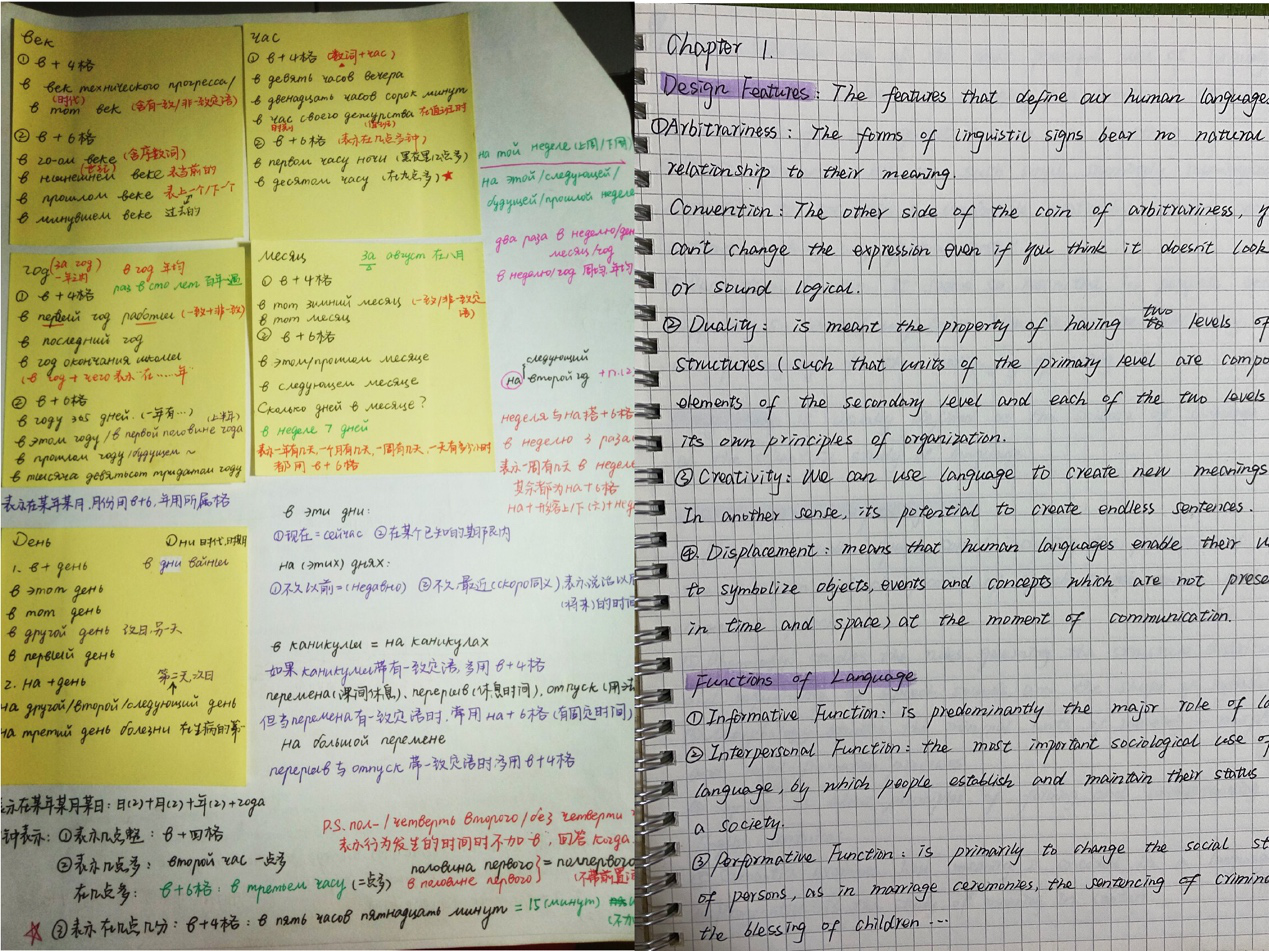 век
① в + 4格
в век технического прогресса/
(时代)
в том век (含有一致/非一致定语)
② в + 6格
в 20-ом веке (含序数词)
(世纪)
в нынешнем веке 表当前的
в прошлом веке 表上一个/下一个
в минувшем веке 过去的
час
① в + 4格 (数词+час)
в девять часов вечера
в двенадцать часов сорок минут
в час своего дежурства 在值班时
时刻
② в + 6格 (表示在几点多钟)
в первом часу ночи (黑夜里12点多)
в десятом часу (在九点多) ★
год (за год)
一年之内
в год 年均
раз в сто лет 百年一遇
① в + 4格
в первый год работы (一致+非一致)
в последний год
в год окончания школы
(в год + чего 表示 在……年
② в + 6格
в году 365 дней. (一年有…)
(上半年)
в этом году / в первой половине года
в прошлом году / будущем ~
в тысяча девятьсот тридцатом году
месяц
за август 在八月
① в + 4格
в тот зимний месяц (一致/非一致定语)
в том месяц
② в + 6格
в этом/прошлом месяце
в следующем месяце
Сколько дней в месяце?
в неделе 7 дней
表示一年有几天,一个月有几天,一周有几天,一天有多少小时
都用 в + 6格
на той неделе (上周/下周)
на этой/следующей/
будущей/прошлой неделе
два раза в неделю/день
месяц/год
в неделю/год 周均,年均
следующий
на второй год
неделя 与 на 搭 + 6格
в неделю 3 раза
表示一周有几天 в неделе
其余都为 на + 6格
表示在某年某月,月份用в+6,年用所属格
День
Дни 时代,时期
1. в + день
в дни войны
в этот день
в тот день
в другой день 改日,另一天
в первый день
2. на + день
第二天,次日
на другой/второй/следующий день
на третий день болезни 在生病的第一
в эти дни:
①现在=сейчас ②在某个已知的期限内
на (этих) днях:
①不久以前=(недавно) ②不久,最近(скоро同义) 表示说话以后
(将来)的时间
в каникулы = на каникулах
如果каникулы带有一致定语,多用 в+4格
перемена(课间休息)、перерыв(休息时间)、отпуск
但当перемена有一致定语时,常用 на+6格 (有固定时间)
на большой перемене
перерыв与отпуск 带一致定语时多用 в+4格
示在某年某月某日: 日(2)+月(2)+年(2)+года
钟表示: ①表示几点整: в + 四格
②表示几点多: второй час 一点多
在几点多: в+6格: в третьем часу (二点多)
③表示在几点几分: в+4格: в пять часов пятнадцать минут = 15 (минут)
P.S. пол-/четверть второго/без четверти
表示行为发生的时间时不加 в, 回答 когда
половина первого} = полпервого
в половине первого}
Chapter 1.
Design Features: The features that define our human language
①Arbitrariness: The forms of linguistic signs bear no natural
relationship to their meaning.
Convention: The other side of the coin of arbitrariness, y
can't change the expression even if you think it doesn't look
or sound logical.
② Duality: is meant the property of having two levels of
structures (such that units of the primary level are compo
elements of the secondary level and each of the two levels
its own principles of organization.
③ Creativity: We can use language to create new meanings
In another sense, its potential to create endless sentences.
④. Displacement: means that human languages enable their u
to symbolize objects, events and concepts which are not prese
in time and space) at the moment of communication.
Functions of Language
① Informative Function: is predominantly the major role of la
② Interpersonal Function: the most important sociological use of
language, by which people establish and maintain their status
a society.
③ Performative Function: is primarily to change the social st
of persons, as in marriage ceremonies, the sentencing of crimin
the blessing of children ···